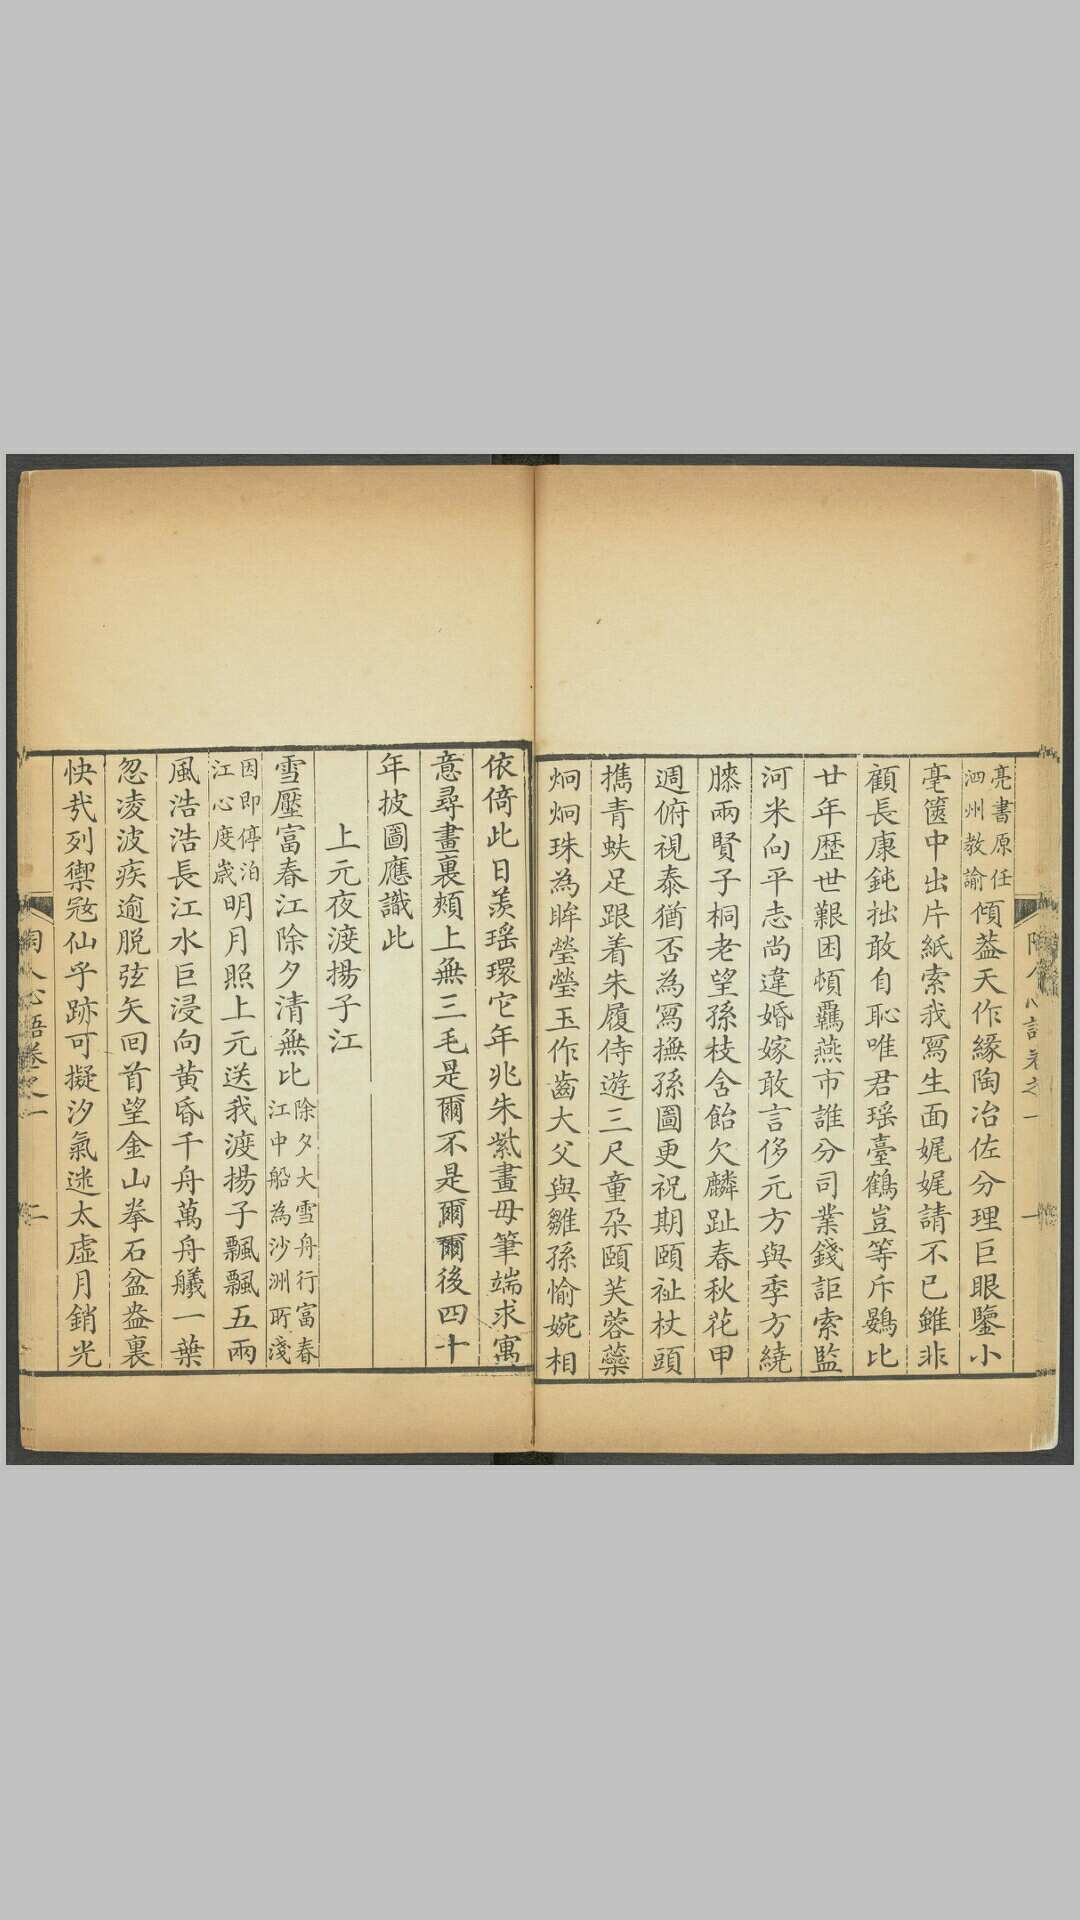 亮書原任
泗州教諭傾葢天作緣陶冶佐分理巨眼鑒小
毫篋中出片紙索我寫生面娓娓請不已雖非
顧長康鈍拙敢自恥唯君瑶臺鶴豈等斥鷃比
廿年歷世艱困頓羈燕市誰分司業錢詎索監
河米向平志尚違婚嫁敢言侈元方與季方繞
膝兩賢子桐老望孫枝含飴欠麟趾春秋花甲
週俯視泰猶否為寫撫孫圖更祝期頤祉杖頭
攜青蚨足跟着朱履侍遊三尺童朶頤芙蓉蘂
炯炯珠為眸瑩瑩玉作齒大父與雛孫愉婉相
依倚此日羨瑶環它年兆朱紫畫毋筆端求寓
意尋畫裏頰上無三毛是爾不是爾爾後四十
年披圖應識此
上元夜渡揚子江
雪壓富春江除夕清無比除夕大雪舟行富春
江中船為沙洲所淺
因即停泊
江心度歲明月照上元送我渡揚子飄飄五兩
風浩浩長江水巨浸向黄昏千舟萬舟艤一葉
忽凌波疾逾脫弦矢回首望金山拳石盆盎裏
快哉列禦冦仙乎跡可擬汐氣迷太虛月銷光
陶人心語卷之一
一
陶人心語卷之一
二